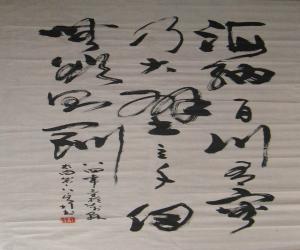 海纳百川有容
乃大壁立千仞
无欲则刚
八四年